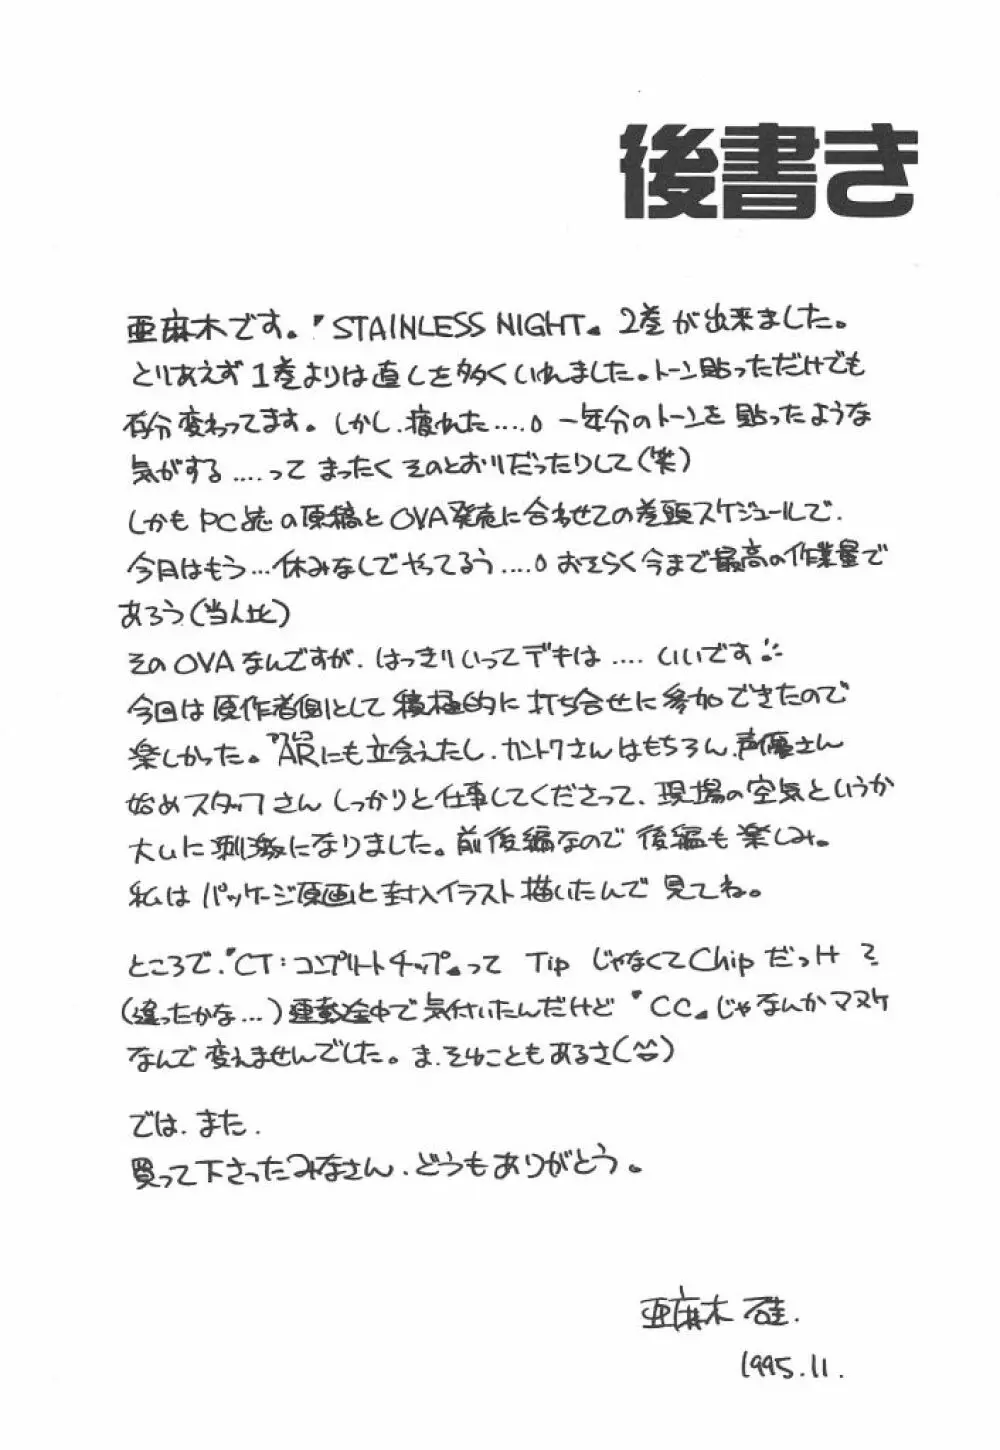 後書き
亜麻木です。『STAINLESS NIGHT』2巻が出来ました。
とりあえず1巻よりは直しを多くいれました。トーン貼っただけでも
存分変わってます。しかし、疲れた....。一年分のトーンを貼ったような
気がする....って まったく そのとおりだったりして(笑)
しかもPC誌の原稿とOVA発売に合わせての巻頭スケジュールで、
今月はもう...休みなしでやってるう....。おそらく今まで最高の作業量で
あろう(当人比)
そのOVAなんですが、はっきりいってデキは....いいです!!
今回は原作者側として積極的に打ち合せに参加できたので
楽しかった。ARにも立会えたし、カントクさんはもちろん、声優さん
始めスタッフさん しっかりと仕事してくださって、現場の空気というか
大いに刺激になりました。前後編なので後編も楽しみ。
私はパッケージ原画と封入イラスト描いたんで見てね。
ところで、『CT:コンプリートチップ』って Tip じゃなくて Chip だっけ?
(違ったかな...)連載途中で気付いたんだけど『CC』じゃなんかマヌケ
なんで変えませんでした。ま、そんなこともあるさ(^^)
では、また。
買って下さったみなさん、どうもありがとう。
亜麻木 硅.
1995.11.